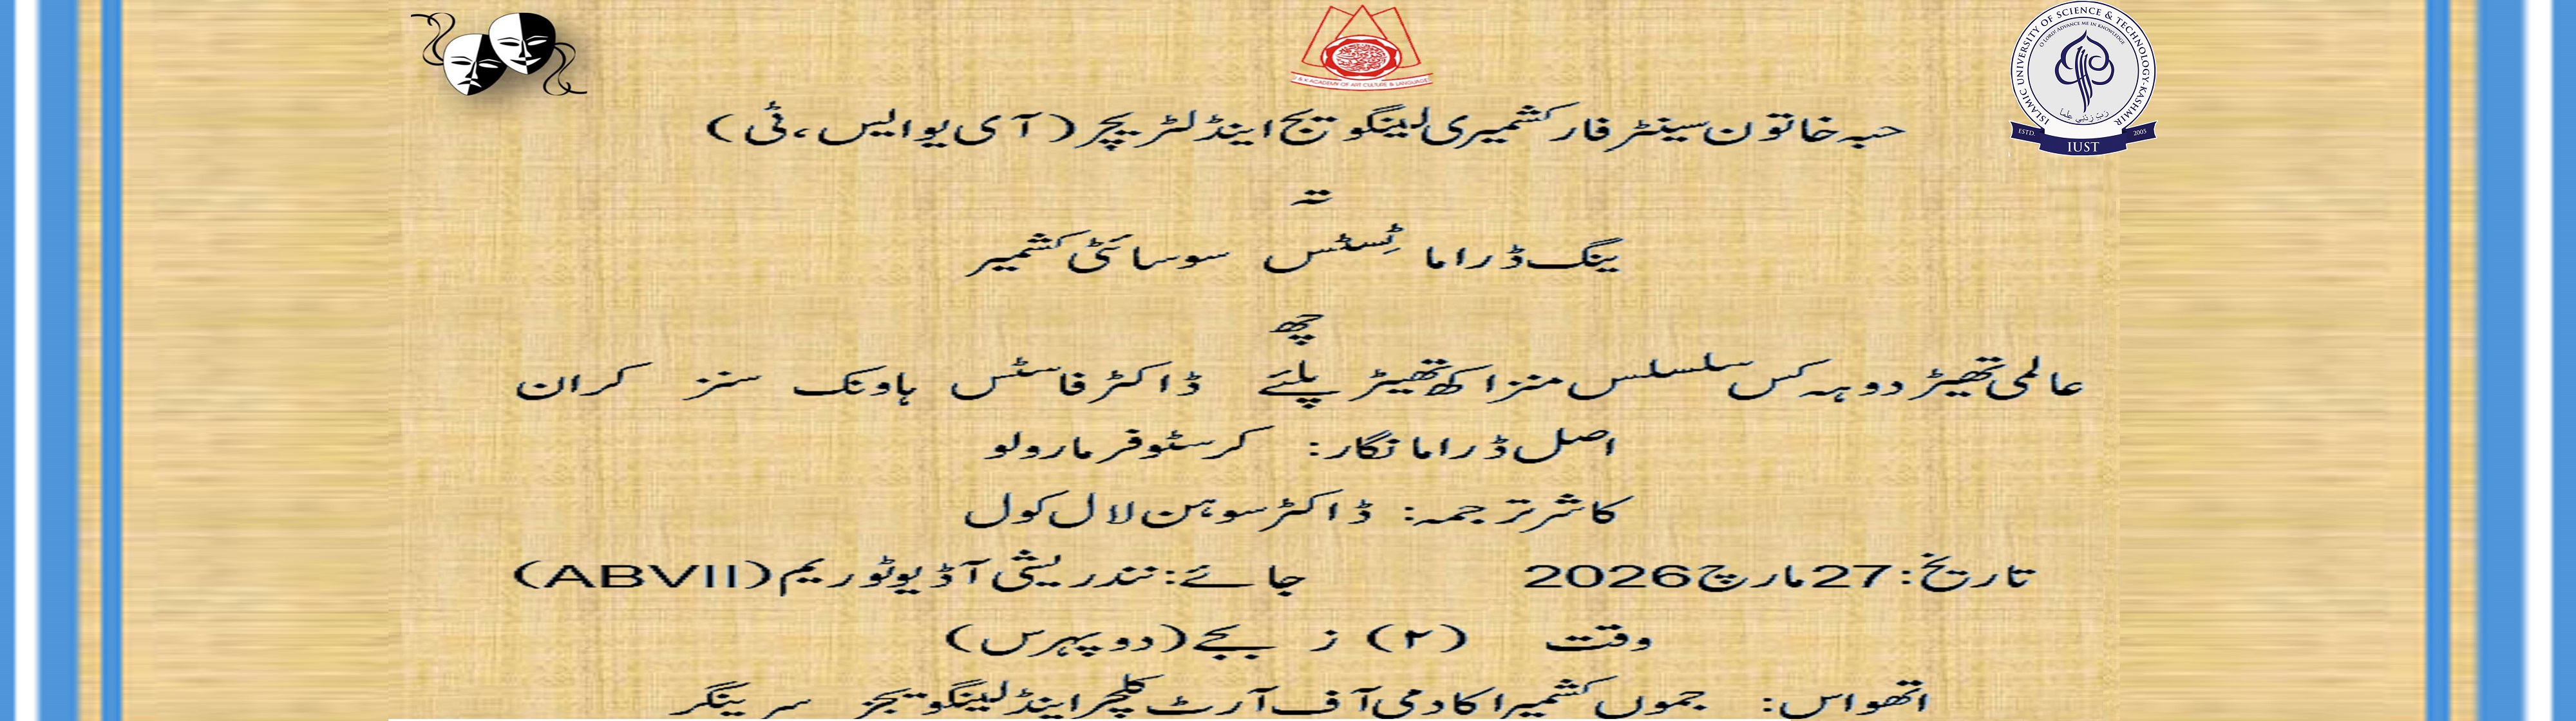 J & K ACADEMY OF ART CULTURE & LANGUAGE
ISLAMIC UNIVERSITY OF SCIENCE & TECHNOLOGY-KASHMIR
O LORD! ADVANCE ME IN KNOWLEDGE
رَبِّ زِدْنِي عِلْمًا
ESTD. 2005
IUST
حبہ خاتون سینٹر فار کشمیری لینگویج اینڈ لٹریچر (آی یو ایس، ٹی)
تہٕ
ینگ ڈراما ٹِسٹس سوسائٹی کشمیر
چھِ
عالمی تھیٹر دوہہ کس سلسلس منز اکھ تھیٹر پلئے ڈاکٹر فاسٹس ہاونک سنز کران
اصل ڈراما نگار: کرسٹوفر مارولو
کاشر ترجمہ: ڈاکٹر سوہن لال کول
تاریخ: 27 مارچ 2026 جائے: نندریشی آڈیوٹوریم (ABVII)
وقت (۲) ز بجے (دوپہرس)
اتھواس: جموں کشمیر اکادمی آف آرٹ کلچر اینڈ لینگویجز سرینگر